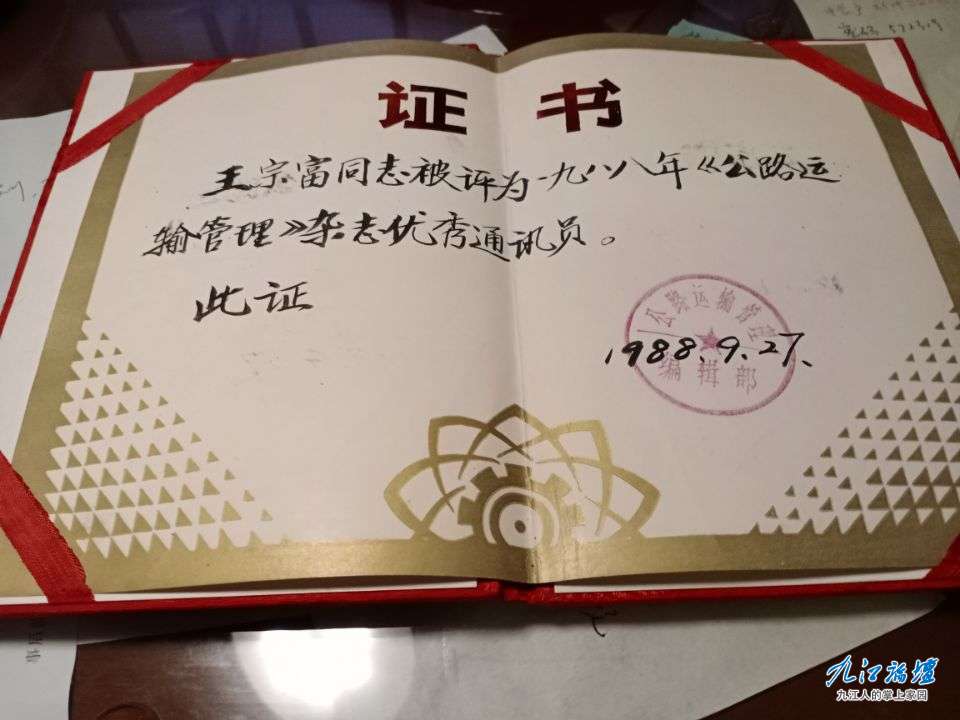 证 书
王宗富同志被评为一九八八年《公路运
输管理》杂志优秀通讯员。
此证
公路运输管理
编辑部
1988.9.27.
九江论坛
九江人的掌上家园